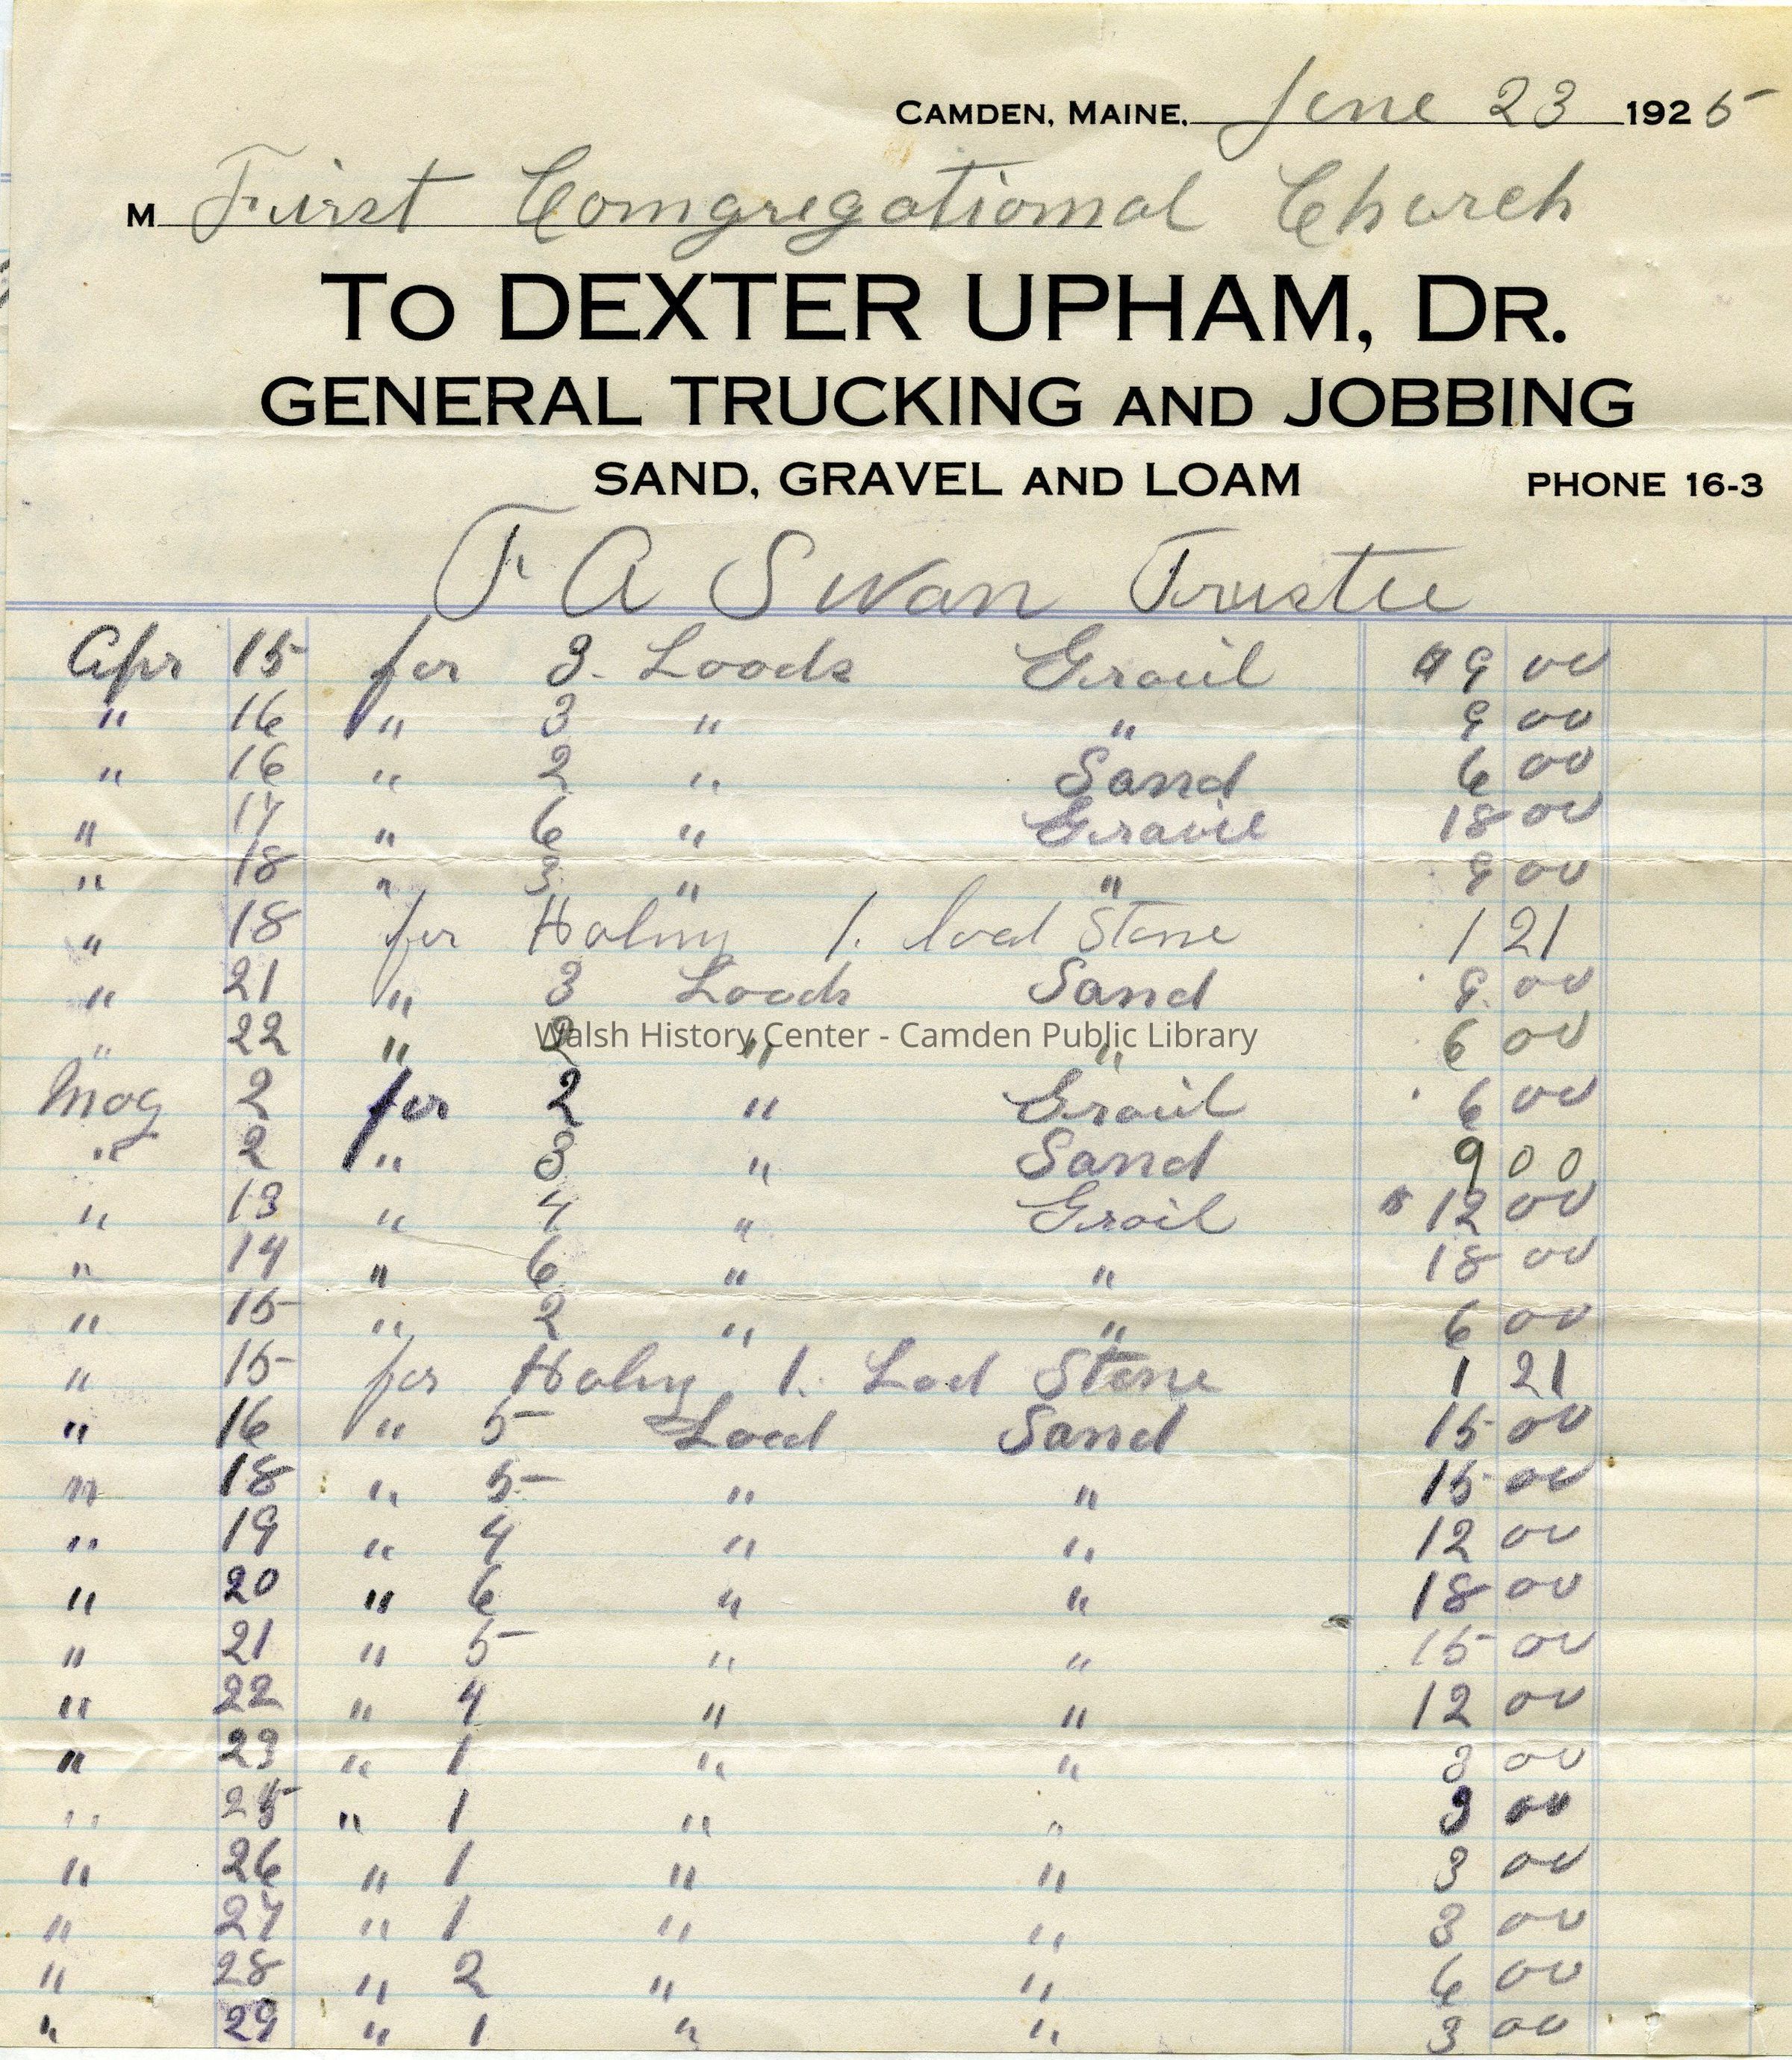 CAMDEN, MAINE, June 23 1925
M First Comgregational Church
To DEXTER UPHAM, DR.
GENERAL TRUCKING AND JOBBING
SAND, GRAVEL AND LOAM PHONE 16-3
F A Swan Trustee
Apr 15 for 3. Loads Gravil $ 9 00
" 16 " 3 " " 9 00
" 16 " 2 " Sand 6 00
" 17 " 6 " Gravil 18 00
" 18 " 3 " " 9 00
" 18 for 1. load Stone 1 21
" 21 " 3 Loads Sand 9 00
" 22 " 2 " " 6 00
Walsh History Center - Camden Public Library
May 2 for 2 " Gravil 6 00
" 2 " 3 " Sand 9 00
" 13 " 4 " Grail $ 12 00
" 14 " 6 " " 18 00
" 15 " 2 " " 6 00
" 15 for 1. Lod Stone 1 21
" 16 " 5 Load Sand 15 00
" 18 " 5 " " 15 00
" 19 " 4 " " 12 00
" 20 " 6 " " 18 00
" 21 " 5 " " 15 00
" 22 " 4 " " 12 00
" 23 " 1 " " 3 00
" 25 " 1 " " 3 00
" 26 " 1 " " 3 00
" 27 " 1 " " 3 00
" 28 " 2 " " 6 00
" 29 " 1 " " 3 00